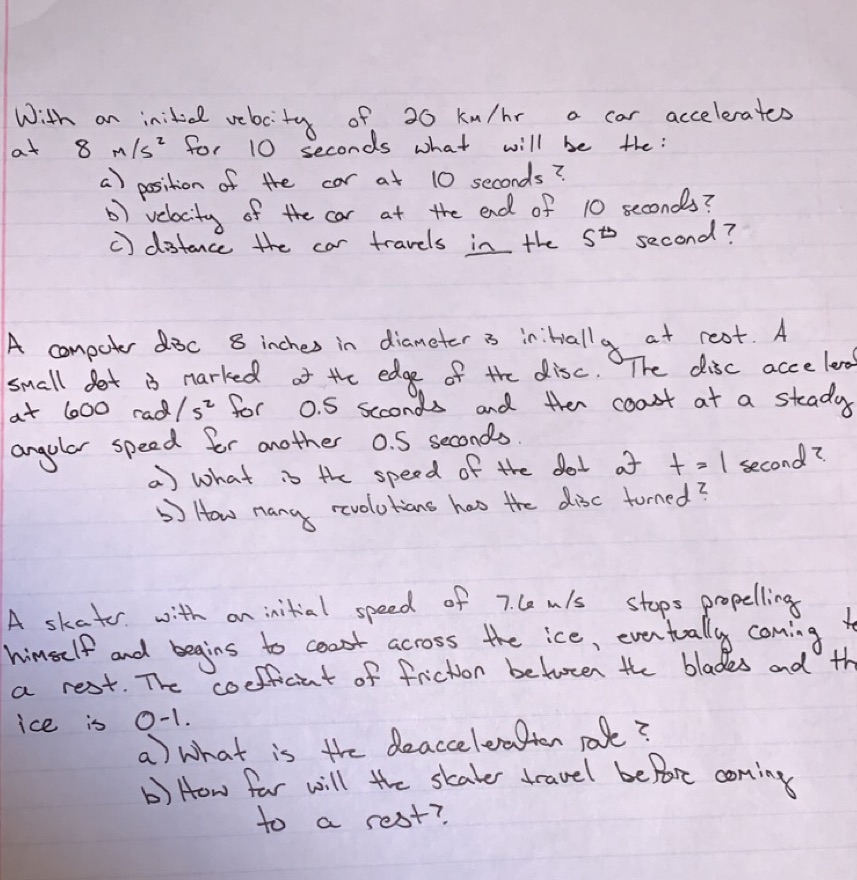 With an initial velocity of 20 km/hr a car accelerates
at 8 m/s² for 10 seconds what will be the:
a) position of the car at 10 seconds?
b) velocity of the car at the end of 10 seconds?
c) distance the car travels in the 5th second?
A computer disc 8 inches in diameter is initially at rest. A
small dot is marked at the edge of the disc. The disc accelerat
at 600 rad/s² for 0.5 seconds and then coast at a steady
angular speed for another 0.5 seconds.
a) What is the speed of the dot at t = 1 second?
b) How many revolutions has the disc turned?
A skater with an initial speed of 7.6 m/s stops propelling
himself and begins to coast across the ice, eventually coming to
a rest. The coefficient of friction between the blades and th
ice is 0-1.
a) What is the deacceleration rate?
b) How far will the skater travel before coming
to a rest?